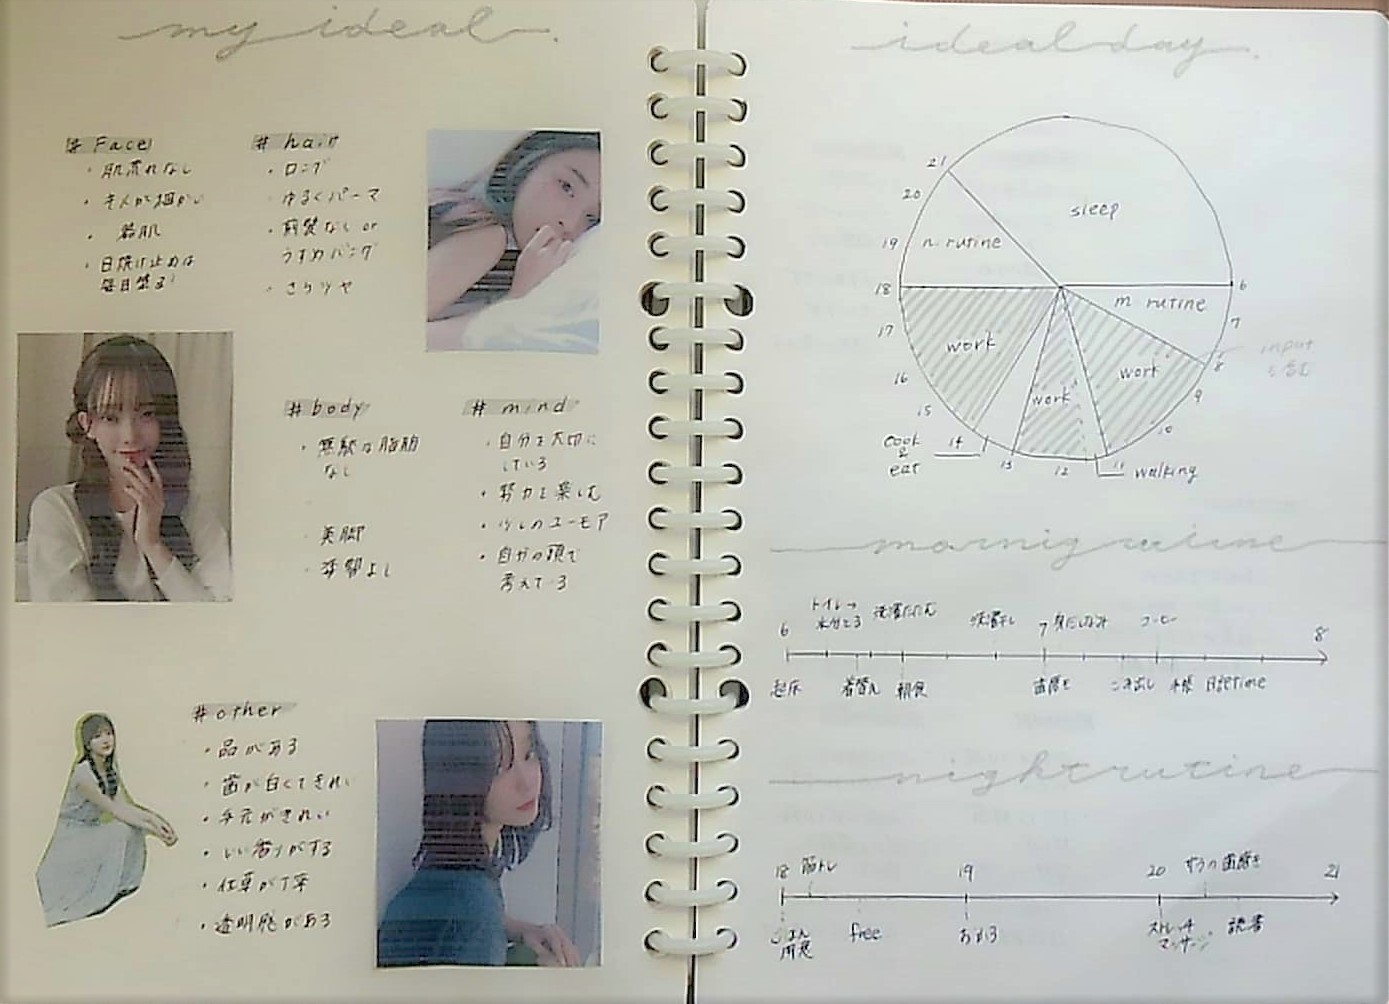 my ideal.
# Face
・肌荒れなし
・キメが細かい
・若肌
・日焼け止めは
毎日塗る!
# hair
・ロング
・ゆるくパーマ
・前髪なし or
うすめバング
・さらツヤ
# body
・無駄な脂肪
なし
・美脚
・姿勢よし
# mind
・自分を大切に
している
・努力を楽しむ
・少しのユーモア
・自分の頭で
考えている
# other
・品がある
・歯が白くてきれい
・手元がきれい
・いい香りがする
・仕草が丁寧
・透明感がある
ideal day.
21
20
19
18
17
16
15
14
13
12
11
10
9
8
7
6
sleep
n. rutine
m rutine
work
work
work
cook
&
eat
walking
input
を含む
mornig rutine
トイレ→
水分とる
洗濯たたむ
洗濯干し
身だしなみ
コーヒー
6
7
8
起床
着替え
朝食
歯磨き
ゴミ出し
手帳
日記time
night rutine
18
筋トレ
19
20
21
ごはん
用意
free
おふろ
ストレッチ
マッサージ
読書